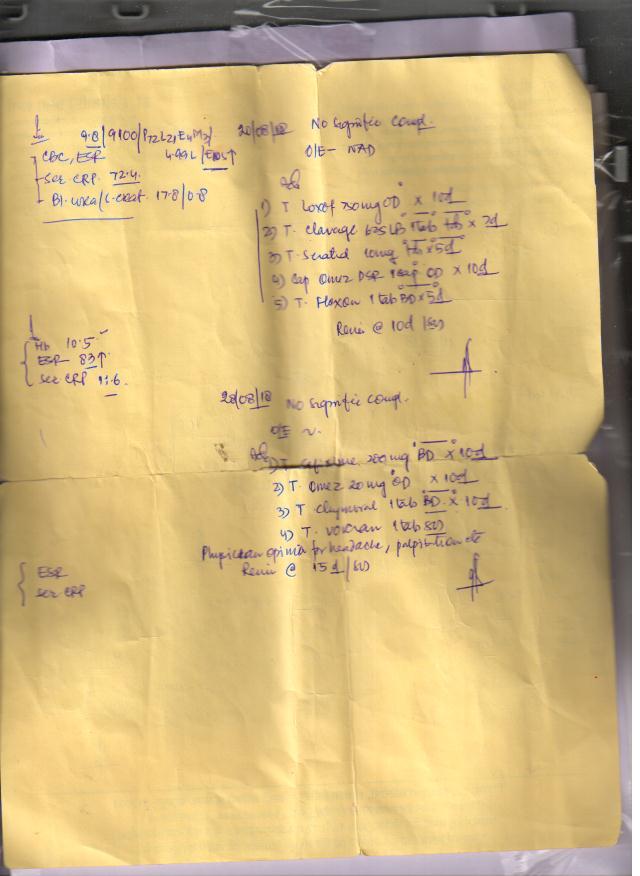 9.8/9100/P72L21E4M3/
CBC, ESR 4.99L/
Ser CRP. 72.4
Bl. urea/S. creat. 17.8/0.8
20/08/18 No significt compl.
O/E- NAD
Adv
1) T Loxof 750mg OD x 10d
2) T. Clavage 625 LB 1tab x 7d
3) T. 10mg x 5d
4) Cap Omez DSR 1cap OD x 10d
5) T. Flexon 1tab BD x 5d
Review @ 10d /SOS
Hb 10.5
ESR 83↑
Ser CRP 11.6
28/08/18 No significt compl.
O/E
Adv
1) T. 200mg BD x 10d
2) T. Omez 20mg OD x 10d
3) T. Chymoral 1tab BD x 10d
4) T. Voveran 1tab SOS
Physician opinion for headache, palpitation etc
Review @ 15d/SOS
ESR
Ser CRP